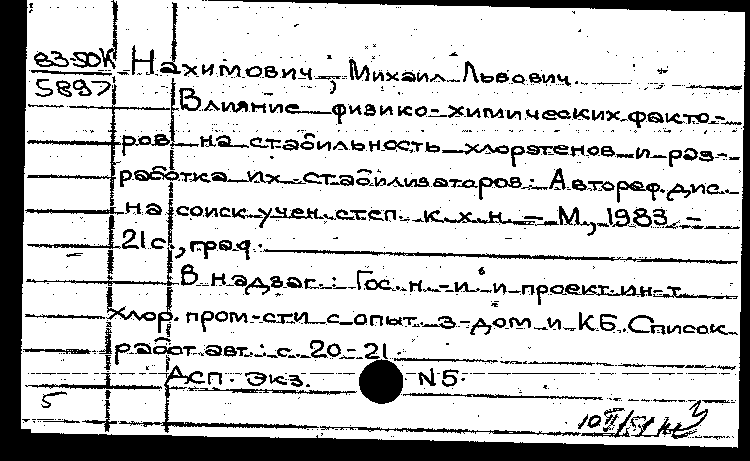 83-50К Нахимович, Михаил Львович.
5897
Влияние физико-химических факто-
ров на стабильность хлоратенов и раз-
работка их стабилизаторов: Автореф. дис.
на соиск. учен. степ. к. х. н. – М., 1983. –
21 с., граф.
В надзаг.: Гос. н.-и. и проект. ин-т
хлор. пром-сти с опыт. з-дом и КБ. Список
работ авт.: с. 20-21.
Асп. экз. N5.
5